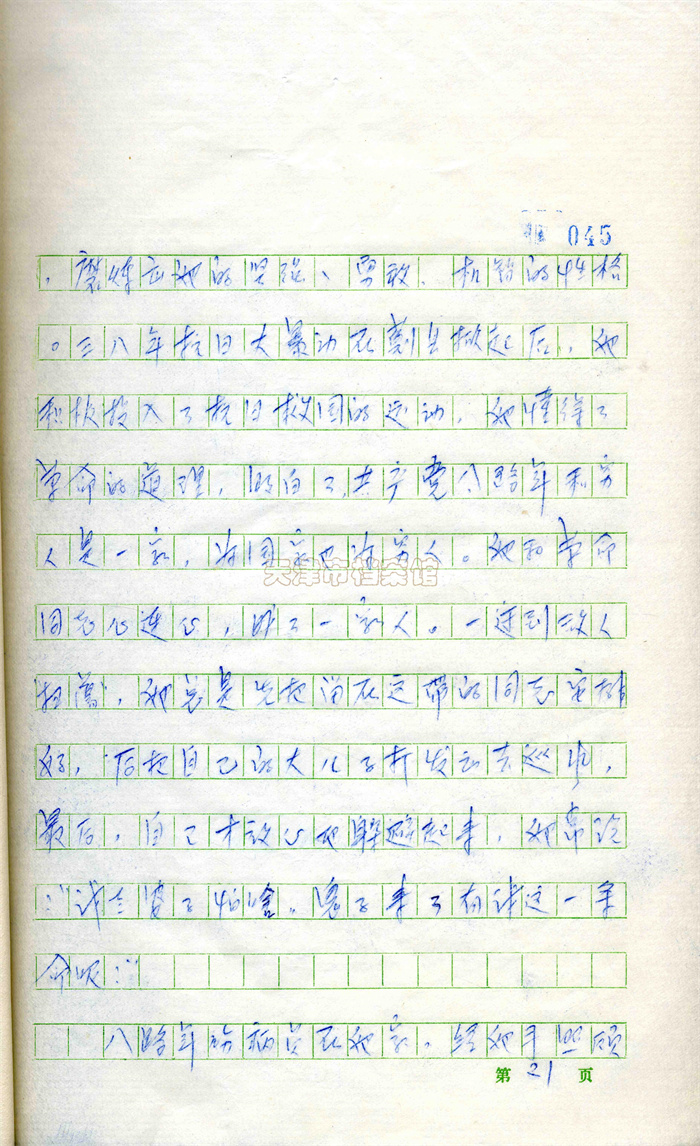 045
，磨炼出她的坚强、勇敢、机智的性格
。三八年抗日大暴动在蓟县掀起后，她
积极投入了抗日救国的运动，她懂得了
革命的道理，明白了，共产党八路军和穷
人是一家，为国家也为穷人。她和革命
天津市档案馆
同志心连心，成了一家人。一遇到敌人
扫荡，她总是先把留在这带的同志安排
好，后把自己的大儿子打发出去巡风，
最后，自己才放心地躲避起来，她常说
：“我老婆子怕啥。鬼子来了有我这一条
命呢：”
八路军伤病员在她家，经她手照顾
第21页